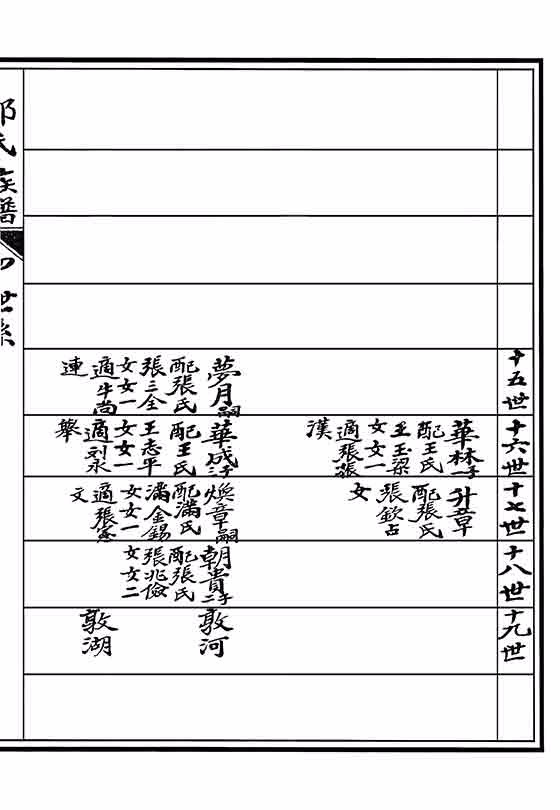 十五世
夢月嗣
配張氏
張三全
女女一
適牛尚
連
十六世
華林一子
配王氏
王玉梁
女女一
適張振
漢
華成二子
配王氏
王志平
女女一
適刘永
舉
十七世
升章
配張氏
張欽占
女
煥章嗣
配滿氏
滿金錫
女女一
適張憲
文
十八世
朝貴二子
配張氏
張兆儉
女女二
十九世
敦河
敦湖
氏族譜
世系